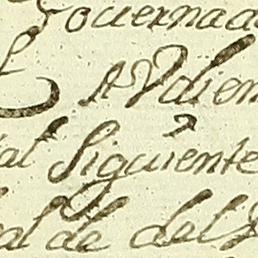 Governad
Audien
al Siguiente
alde del